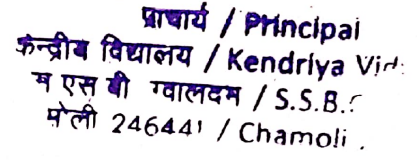 प्राचार्य / Principal
केन्द्रीय विद्यालय / Kendriya Vid
एस बी ग्वालदम / S.S.B.
246441 / Chamoli.